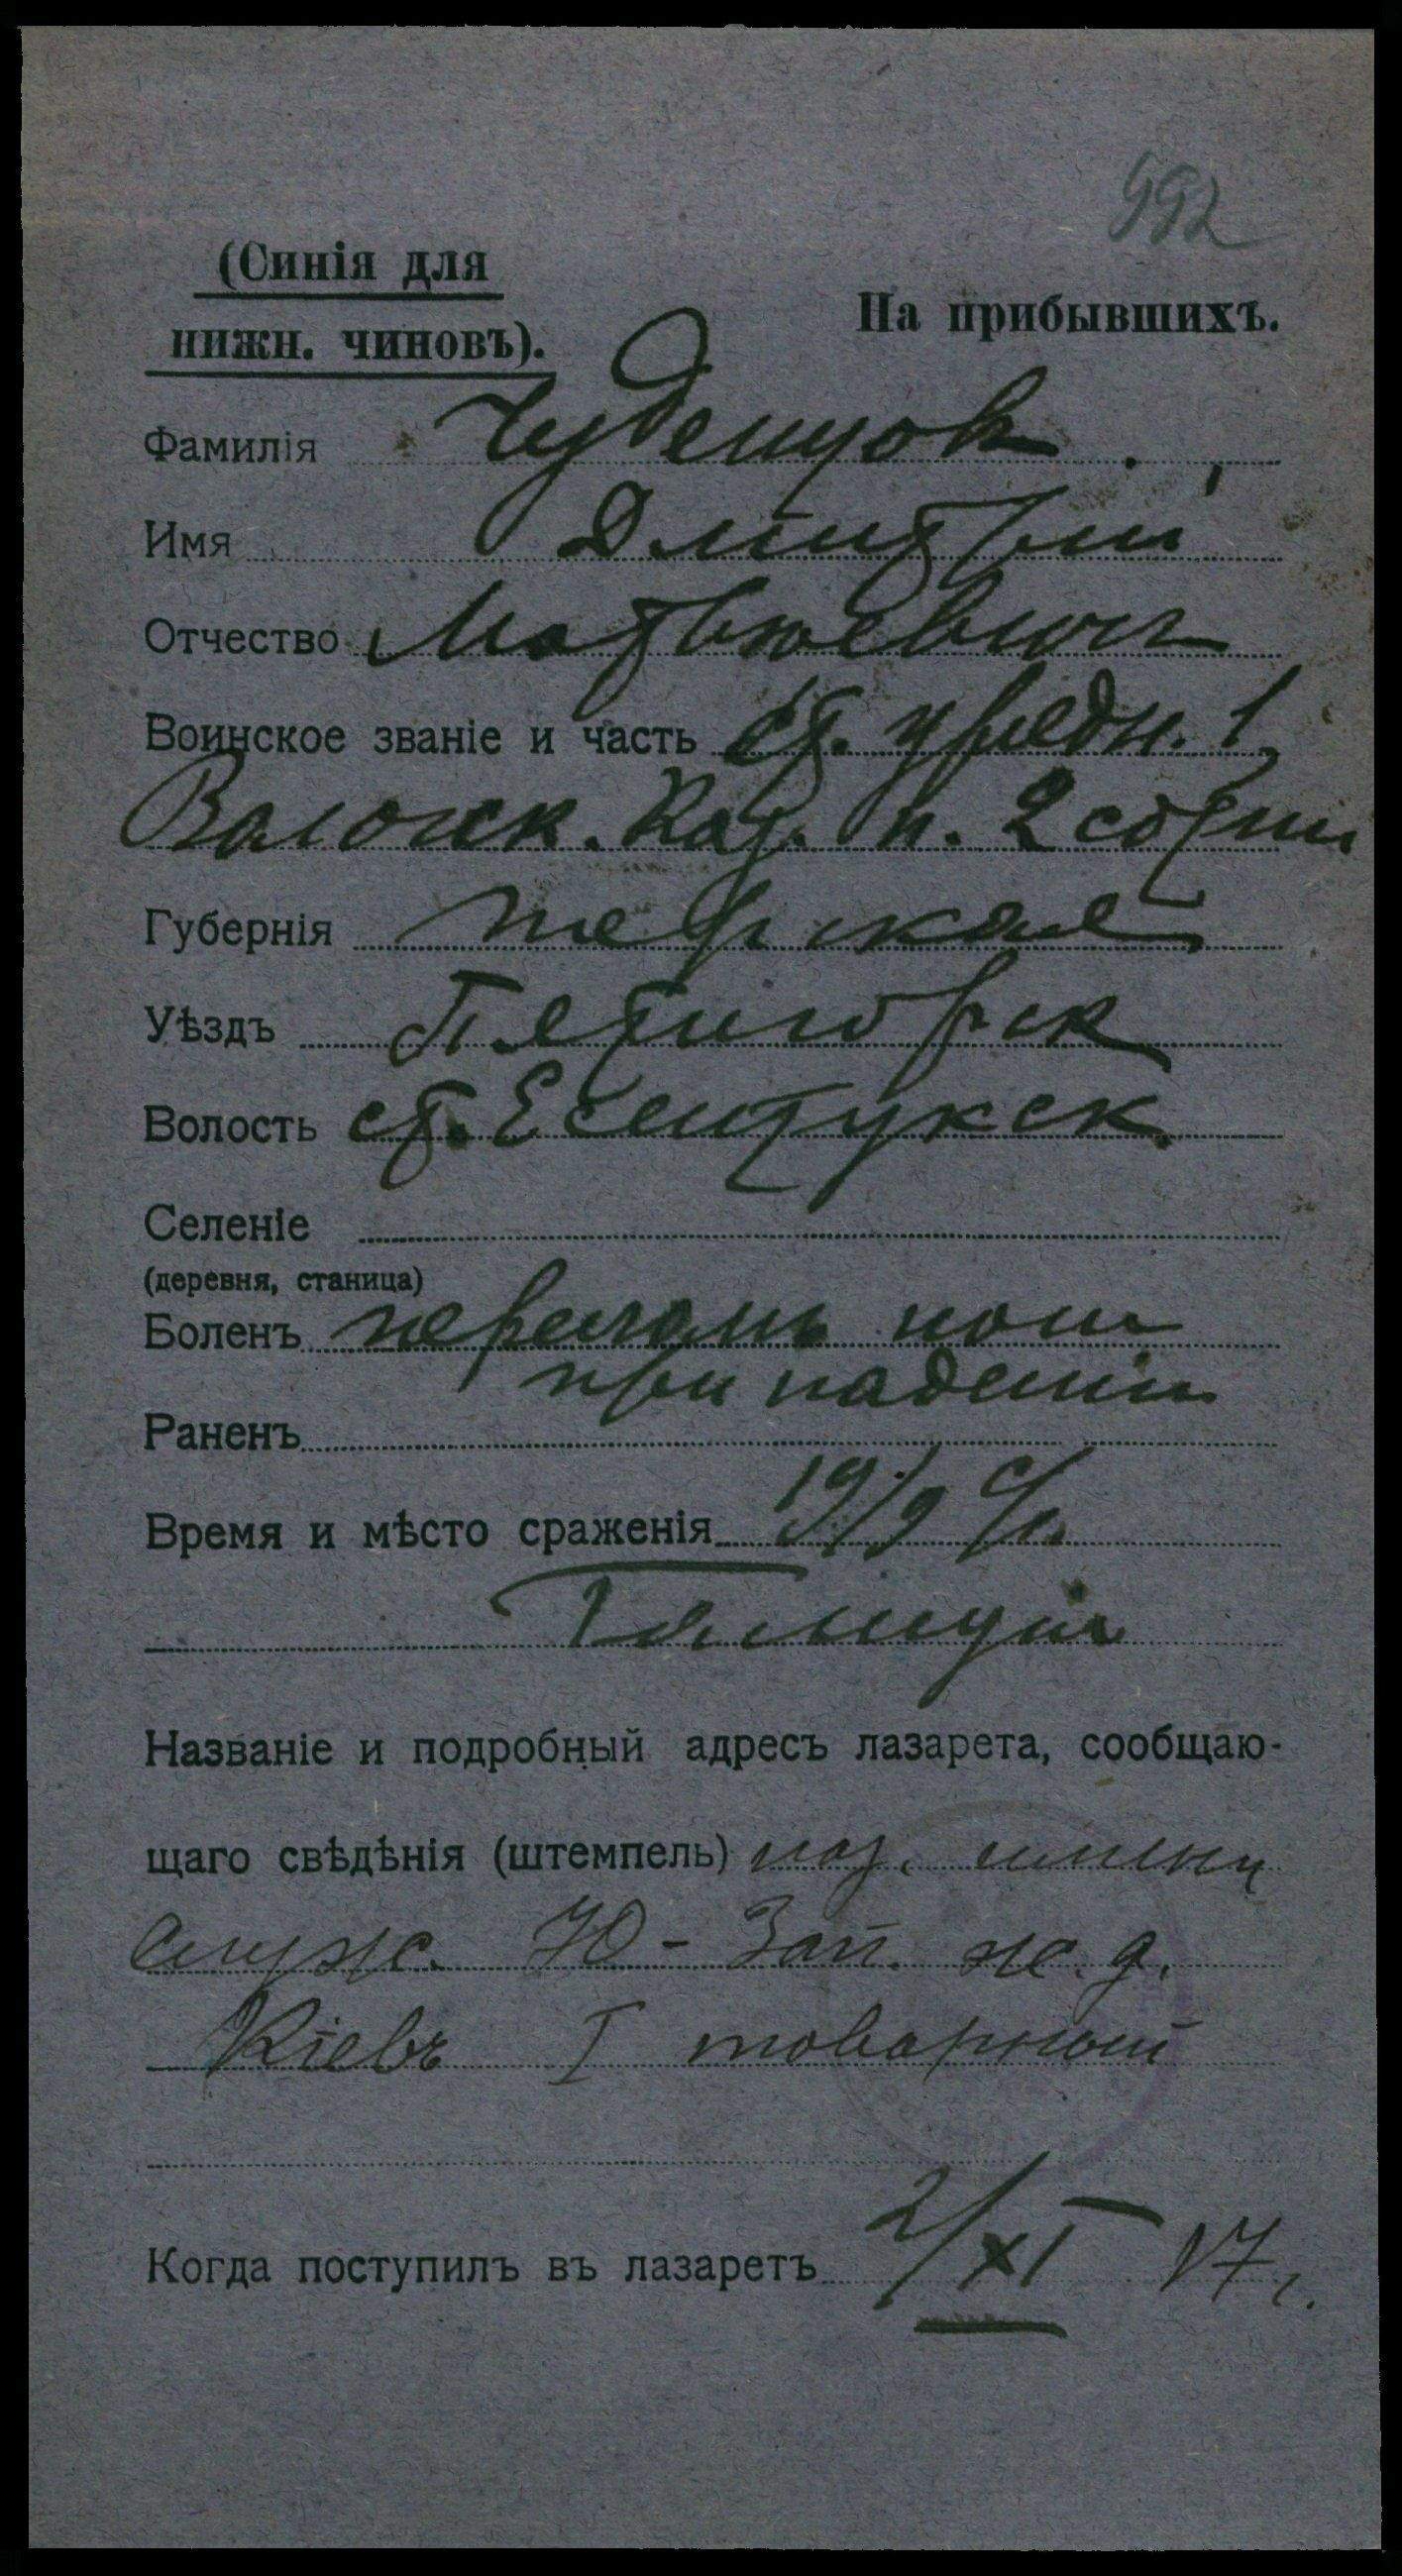 992
(Синія для
На прибывшихъ.
нижн. чиновъ).
Фамилія
Имя Дмитрій
Отчество Матвѣевичъ
Воинское званіе и часть ст. урядн. 1
Волжск. Каз. п. 2 сотни
Губернія Терская
Уѣздъ Пятигорск
Волость ст. Есентукск.
Селеніе
(деревня, станица)
Боленъ переломъ ноги
при паденіи
Раненъ
Время и мѣсто сраженія 19/9 с/г.
Галиція
Названіе и подробный адресъ лазарета, сообщаю-
щаго свѣдѣнія (штемпель) лаз.
служ. Ю-Зап. ж. д.
Кіевъ I товарный
Когда поступилъ въ лазаретъ 2/XI 17 г.